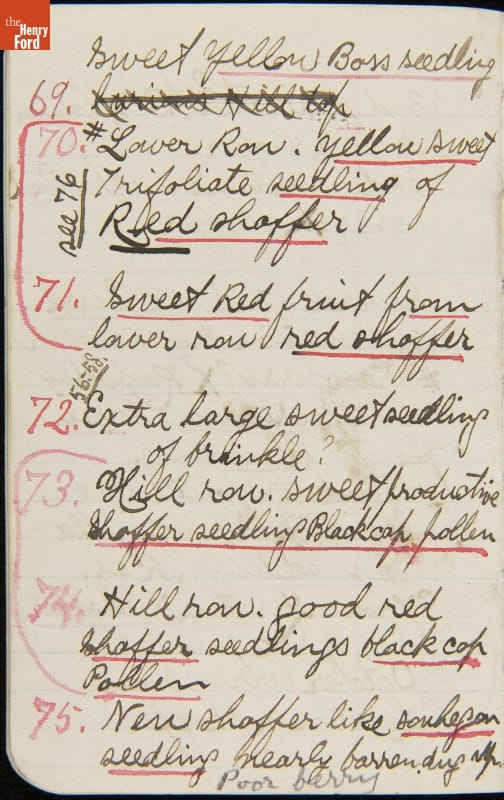 the
Henry
Ford
Sweet Yellow Boss seedling
69. Curious Hill top
70. # Lower Row. Yellow sweet
Trifoliate seedling of
see 76
Reed shaffer
71. Sweet Red fruit from
lower row red shaffer
56-58
72. Extra large sweet seedling
of brinkle?
73. Hill row. sweet productive
Shaffer seedling Blackcap pollen
74. Hill row. good red
Shaffer seedlings black cap
Pollen
75. New shaffer like souhegan
seedling nearly barren. dug up.
Poor berry